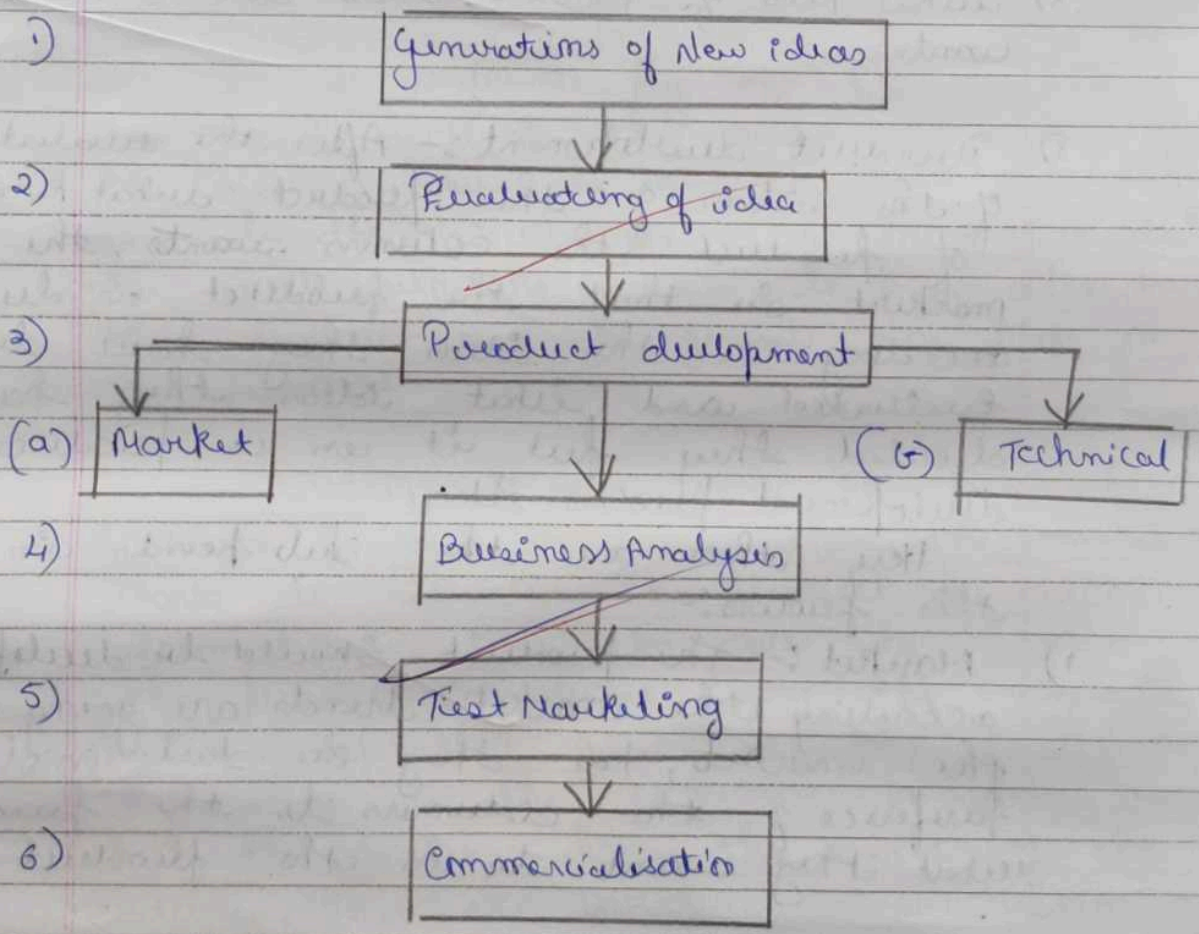 1) Generations of New ideas
2) Evaluating of idea
3) Product development
(a) Market (b) Technical
4) Business Analysis
5) Test Marketing
6) Commercialisation